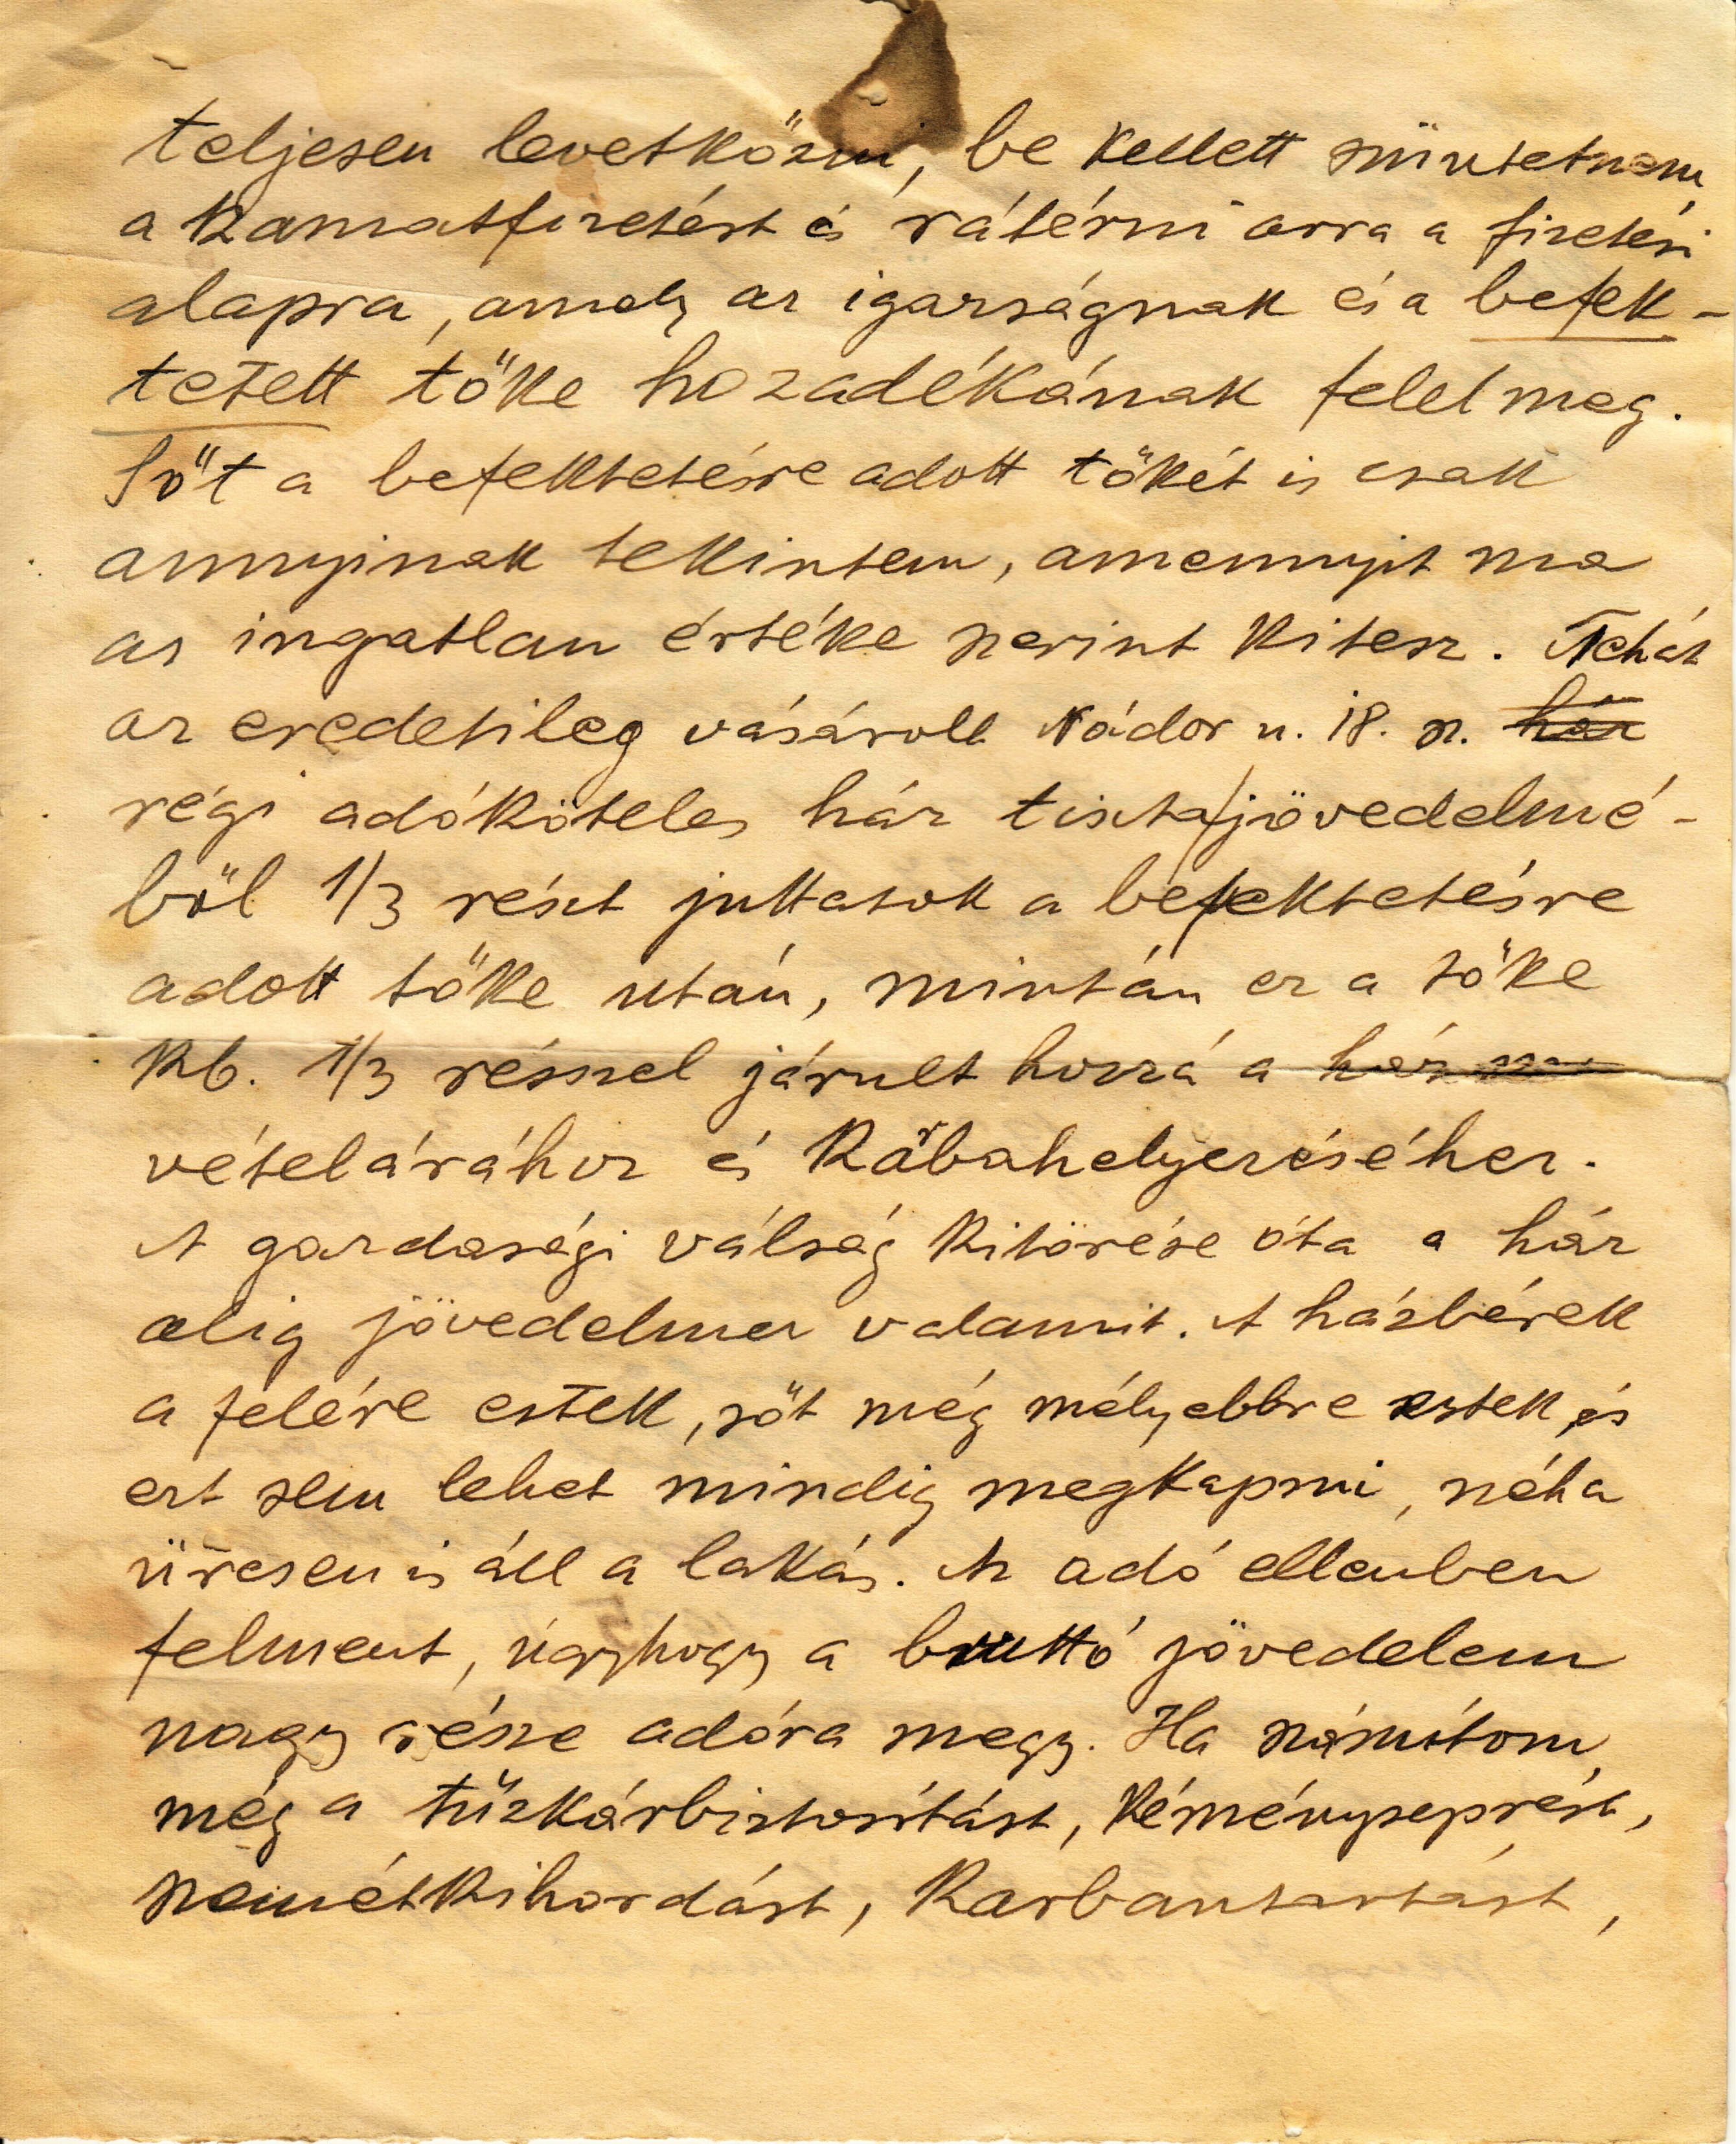 teljesen levetkőzni, be kellett szüntetnem
a kamatfizetést és rátérni arra a fizetési
alapra, amely az igazságnak és a befek-
tetett tőke hozadékának felel meg.
Sőt a befektetésre adott tőkét is csak
annyinak tekintem, amennyit ma
az ingatlan értéke szerint kitesz. Tehát
az eredetileg vásárolt Nádor u. 18. sz. ház
régi adóköteles ház tiszta jövedelmé-
ből 1/3 részt juttatok a befektetésre
adott tőke után, mintán ez a tőke
kb. 1/3 résszel járult hozzá a ház
vételárához és karbahelyezéséhez.
A gazdasági válság kitörése óta a ház
alig jövedelmez valamit. A házbérek
a felére estek, sőt még mélyebbre estek, és
ezt sem lehet mindig megkapni, néha
üresen is áll a lakás. Az adó ellenben
felment, úgyhogy a bruttó jövedelem
nagy része adóra megy. Ha számítom
még a tűzkárbiztosítást, kéményseprést,
szemétkihordást, karbantartást,